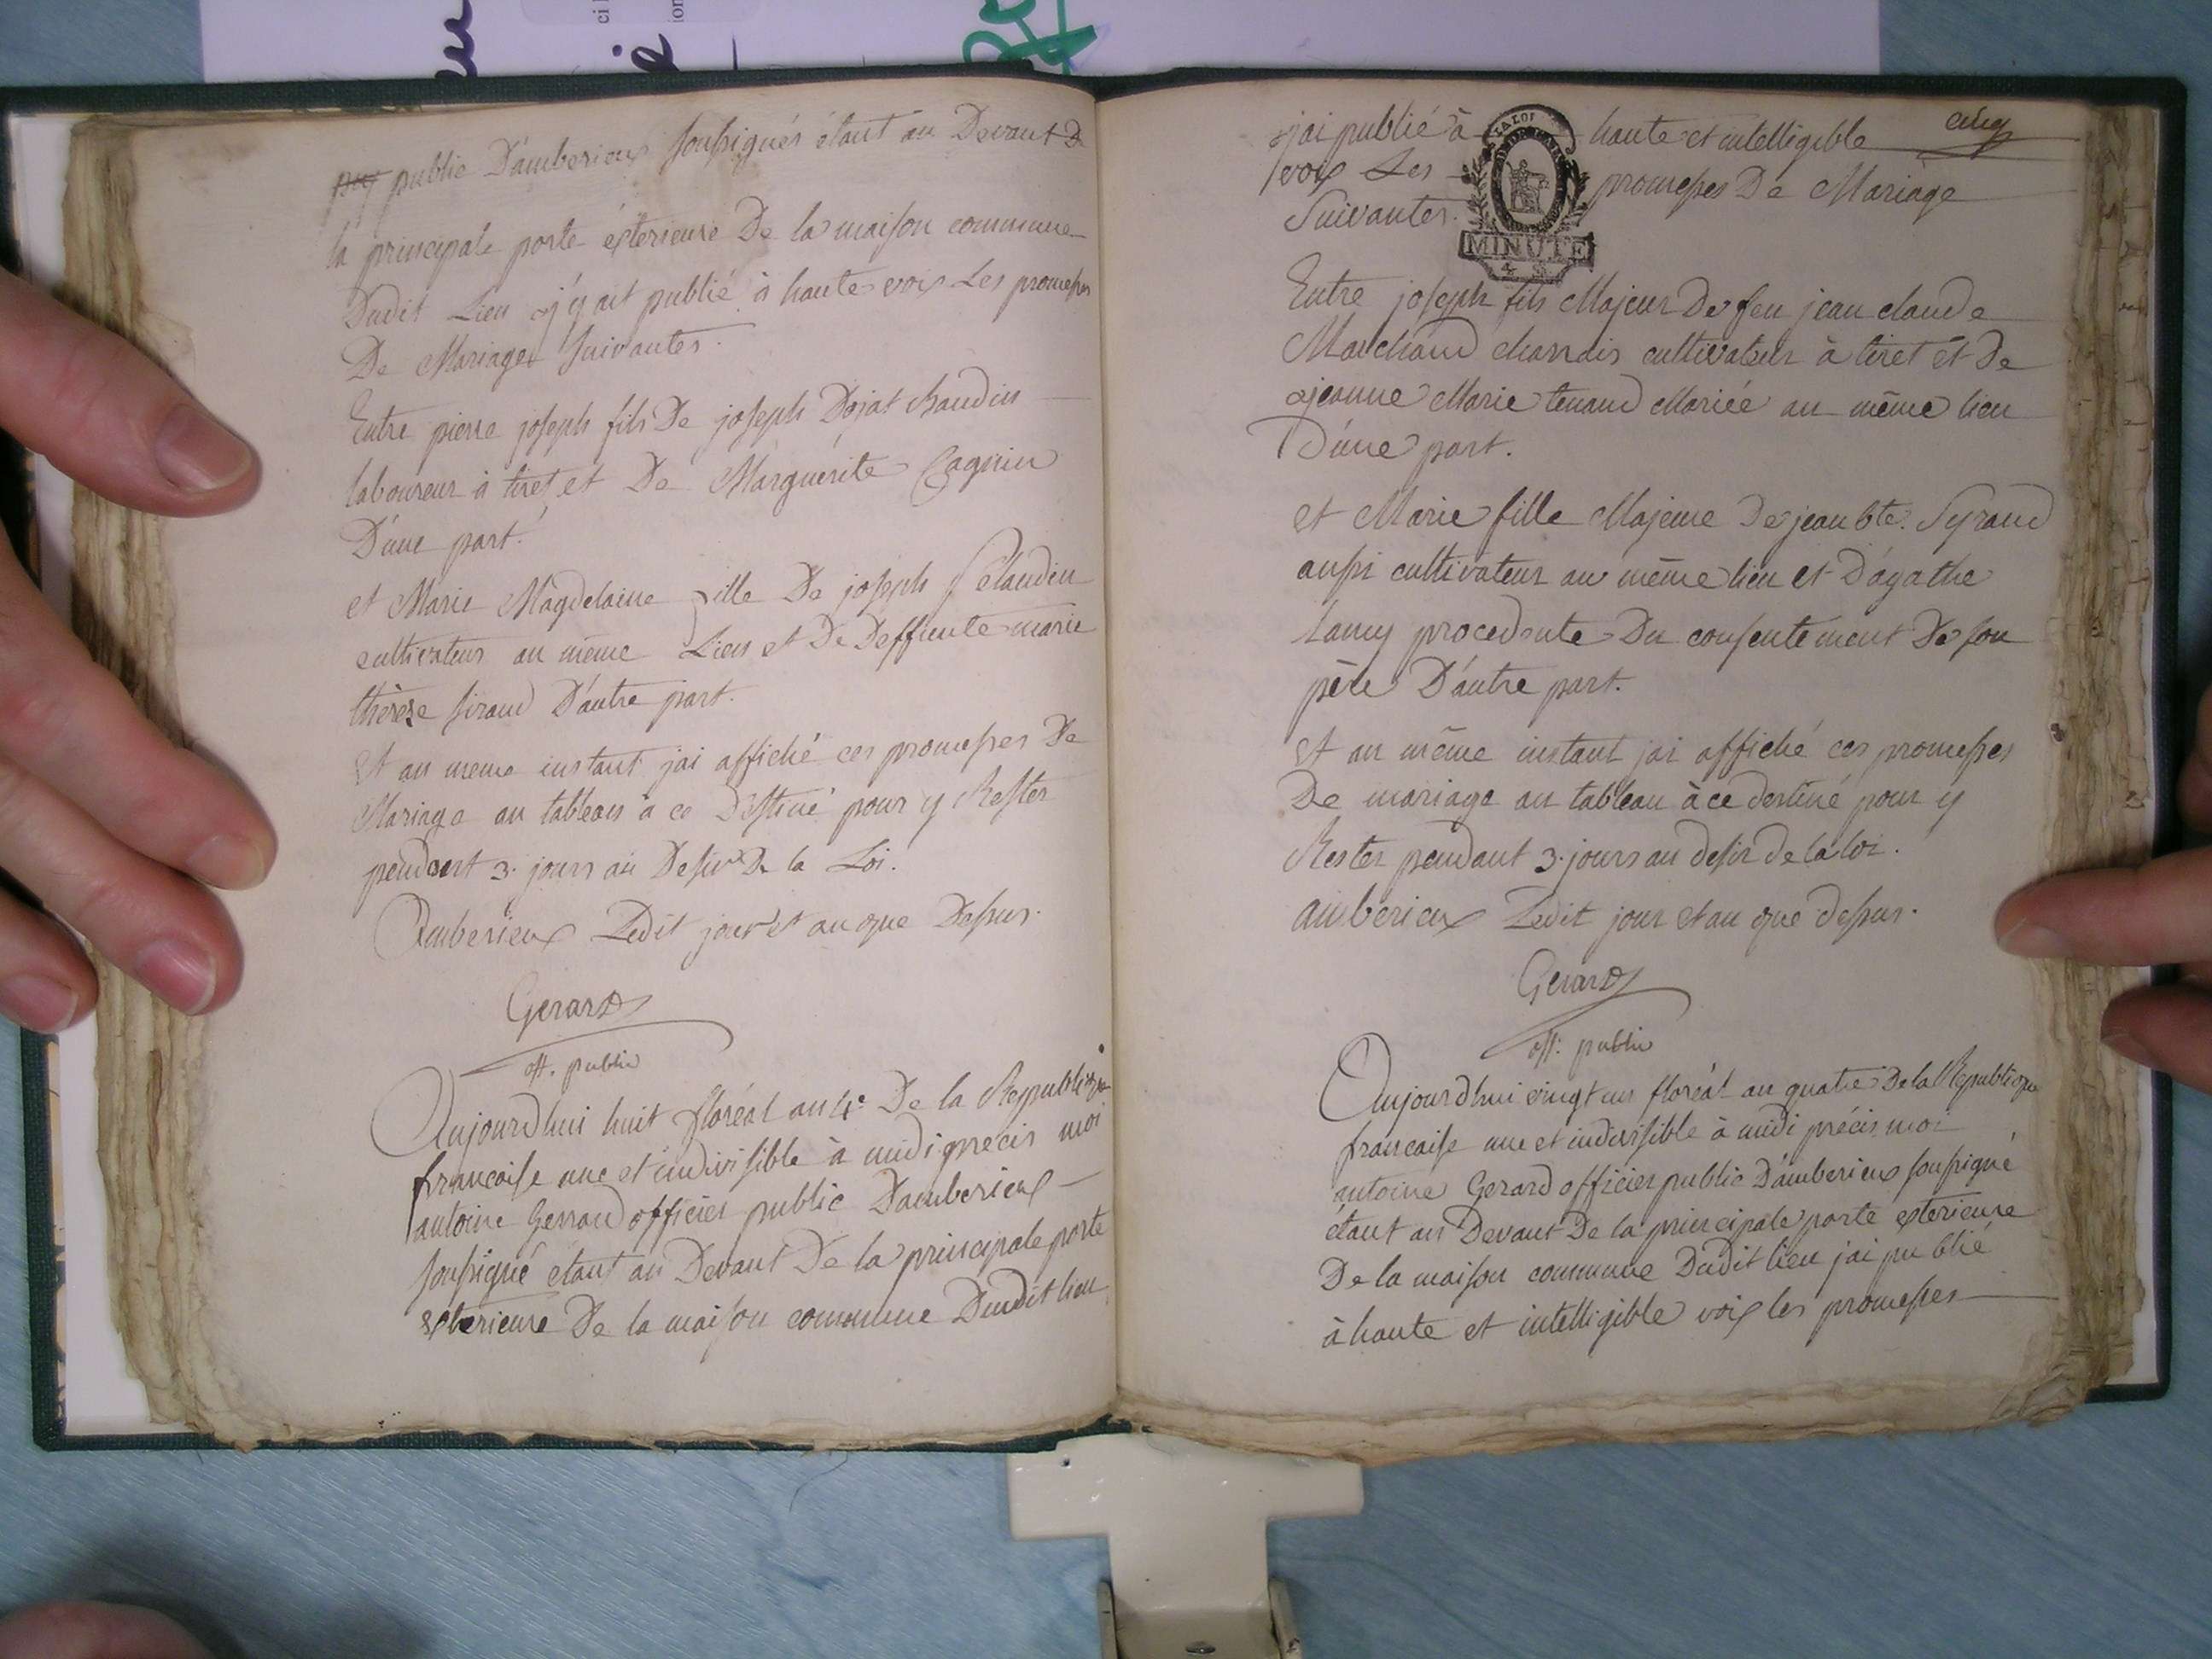 public D'amberieux soussignés étant au Devant De
la principale porte exterieure De la maison commune
Dudit Lieu j'y ait publié à haute voix Les promesses
De Mariages suivantes.
Entre pierre joseph fils De joseph Dojat Baudin
laboureur à tiret et De Marguerite Cagnin
D'une part.
et Marie Magdelaine fille De joseph
cultivateur au même Lieu et De Deffunte marie
thèrèse siraud D'autre part.
Et au meme instant jai affiché ces promesses De
Mariage au tableau à ce Destiné pour y Rester
pendant 3. jours au Desir De la Loi.
Amberieux Ledit jour et an que Dessus.
Gerard
off. public
Aujourdhui huit floréal an 4e. De la Republique
francaise une et indivisible à midi précis moi
antoine Gerraud officier public D'amberieux
soussigné étant au Devant De la principale porte
exterieure De la maison commune Dudit lieu
cinq
jai publié à haute et intelligible
voix Les promesses De Mariage
Suivantes.
LA LOI
MINUTE
Entre joseph fils Majeur De feu jean claude
Marchand charrois cultivateur à tiret et De
jeanne Marie tenand Mariée au même lieu
D'une part.
et Marie fille Majeure De jean bte. Syraud
aussi cultivateur au même lieu et D'agathe
Lamy procedente Du consentement De son
père D'autre part.
Et au même instant jai affiché ces promesses
De mariage au tableau à ce destiné pour y
Rester pendant 3. jours au desir de la loi.
amberieux Ledit jour et an que dessus.
Gerard
off. public
Aujourdhui vingt un floréal an quatre De la Republique
francaise une et indivisible à midi précis moi
antoine Gerard officier public D'amberieux soussigné
étant au Devant De la principale porte exterieure
De la maison commune Dudit lieu jai publié
à haute et intelligible voix les promesses